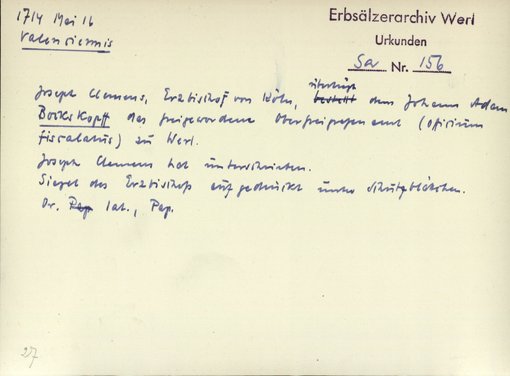 1714 Mai 16
Valenciennis
Erbsälzerarchiv Werl
Urkunden
Sa Nr. 156
Joseph Clemens, Erzbischof von Köln, überträgt dem Johann Adam
Bockskopff das freigewordene Oberfreigrafenamt (officium
fiscalatus) zu Werl.
Joseph Clemens hat unterschrieben.
Siegel des Erzbischofs aufgedrückt unter Schutzblättchen.
Or. lat., Pap.
27